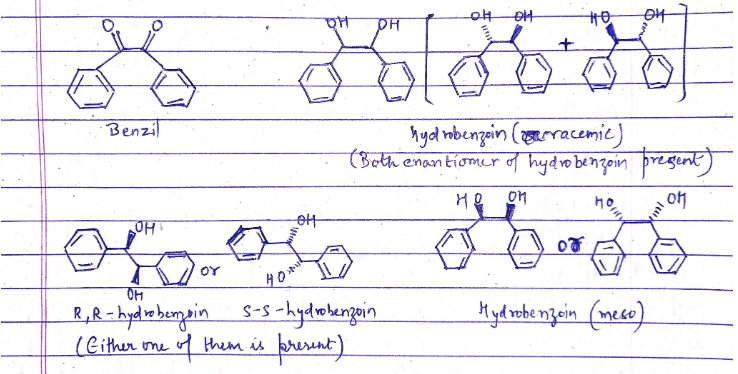 O O
OH OH
OH OH + HO OH
Benzil
hydrobenzoin (racemic)
(Both enantiomer of hydrobenzoin present)
OH
OH
or
OH
HO
HO OH
or
HO OH
R,R-hydrobenzoin S-S-hydrobenzoin Hydrobenzoin (meso)
(Either one of them is present)